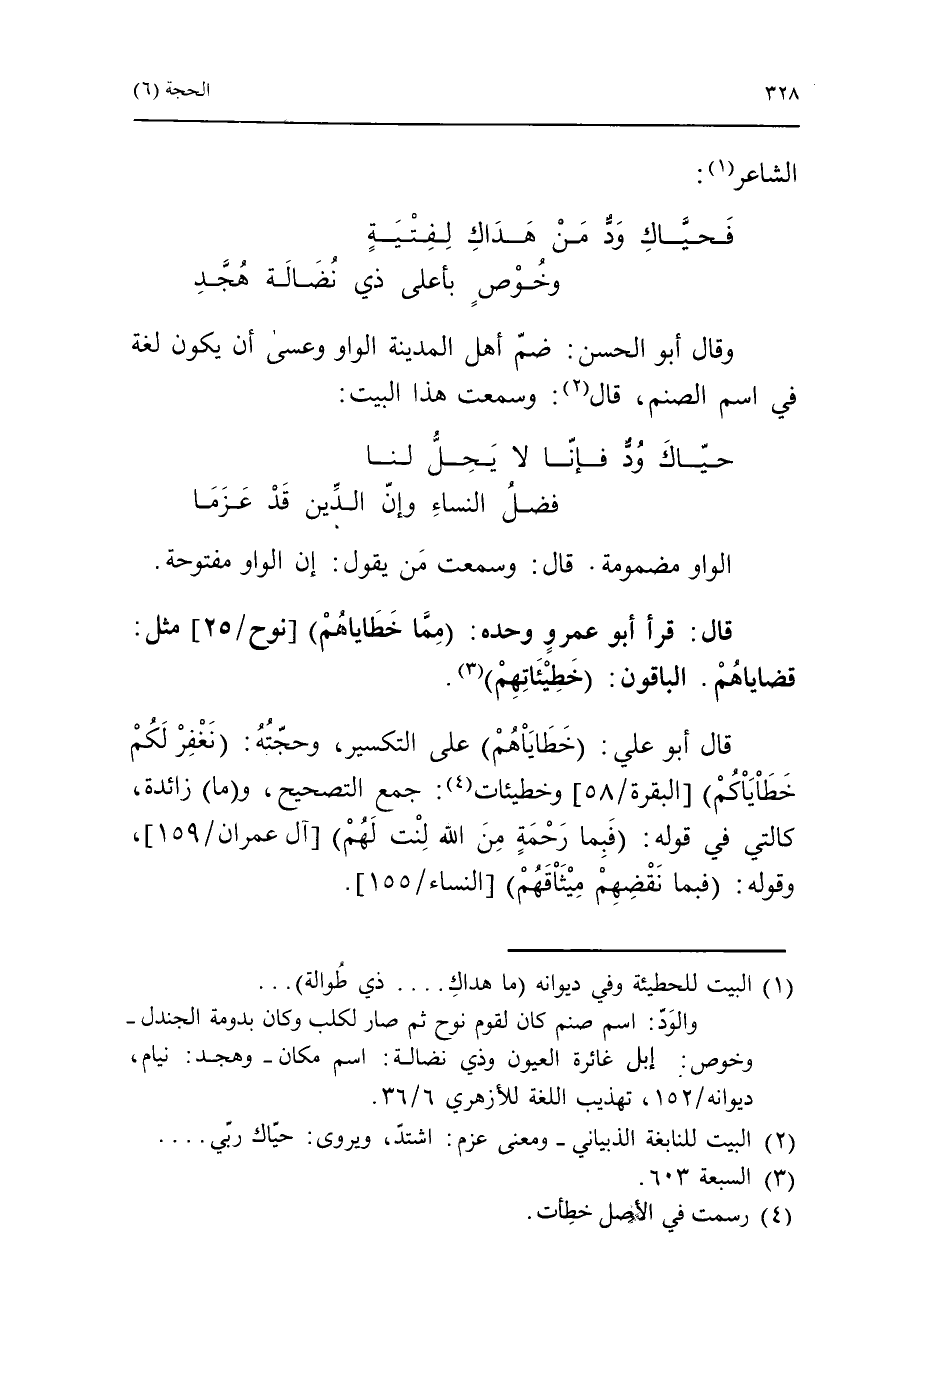 ٣٢٨
الحجة (٦)
الشاعر(١):
فَـحيَّـــاكِ وَدٌّ مَـنْ هَــدَاكِ لِـفِـتْـيَـــةٍ
وخُــوْصٍ بأعلى ذي نُضَــالَــة هُجَّــدِ
وقال أبو الحسن: ضمّ أهل المدينة الواو وعسىٰ أن يكون لغة
في اسم الصنم، قال(٢): وسمعت هذا البيت:
حيّــاكَ وُدٌّ فــإنّــا لا يَـحِــلُّ لـنــا
فضــلُ النساءِ وإنّ الــدِّين قَدْ عَــزَمَــا
الواو مضمومة. قال: وسمعت مَن يقول: إن الواو مفتوحة.
قال: قرأ أبو عمروٍ وحده: (مِمَّا خَطَاياهُمْ) [نوح/٢٥] مثل:
قضاياهُمْ. الباقون: (خَطِيْئَاتِهِمْ)(٣).
قال أبو علي: (خَطَايَاْهُمْ) على التكسير، وحجّتُهُ: (نَغْفِرْ لَكُمْ
خَطَاْيَاْكُمْ) [البقرة/٥٨] وخطيئات(٤): جمع التصحيح، و(ما) زائدة،
كالتي في قوله: (فَبِما رَحْمَةٍ مِنَ الله لِنْت لَهُمْ) [آل عمران/١٥٩]،
وقوله: (فبما نَقْضِهِمْ مِيْثَاْقَهُمْ) [النساء/١٥٥].
(١) البيت للحطيئة وفي ديوانه (ما هداكِ.... ذي طُوالة)...
والوَدّ: اسم صنم كان لقوم نوح ثم صار لكلب وكان بدومة الجندل ـ
وخوص: إبل غائرة العيون وذي نضالـة: اسم مكان ـ وهجـد: نيام،
ديوانه/١٥٢، تهذيب اللغة للأزهري ٣٦/٦.
(٢) البيت للنابغة الذبياني ـ ومعنى عزم: اشتدّ، ويروى: حيّاك ربّي....
(٣) السبعة ٦٠٣.
(٤) رسمت في الأصل خطأت.